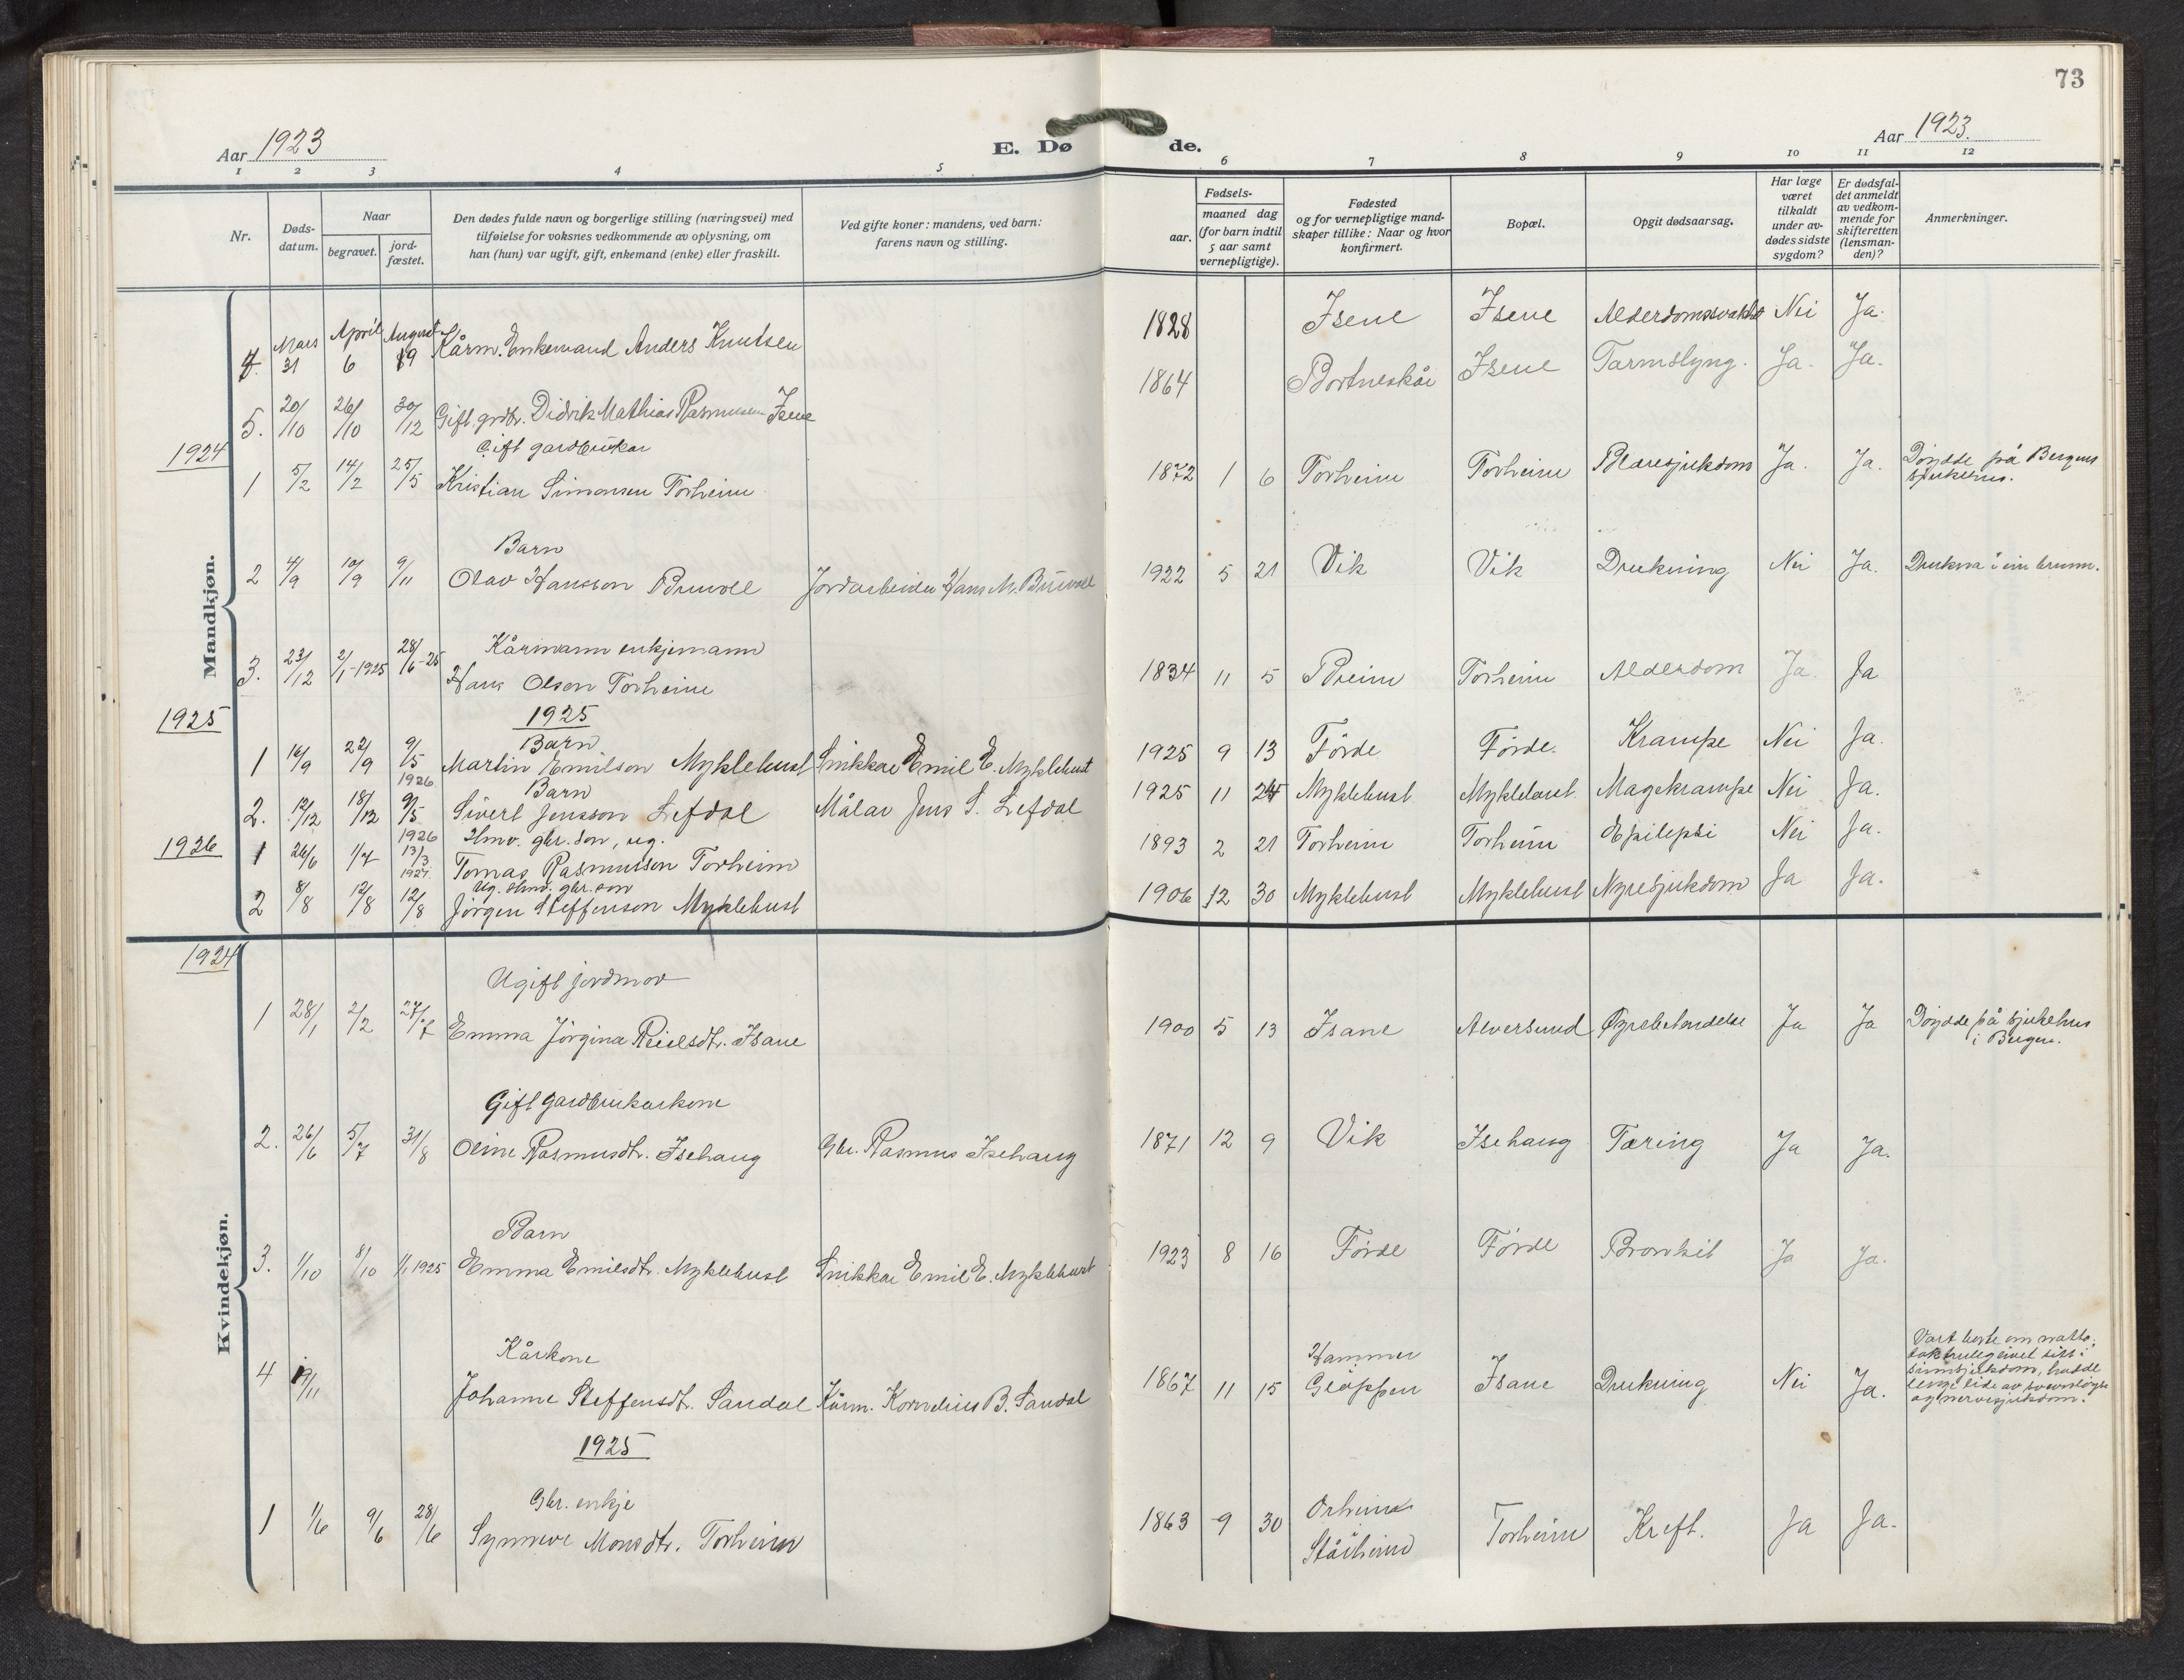 73
Aar 1923
E. Dø
de.
Aar 1923.
1 2 3 4 5 6 7 8 9 10 11 12
Nr.
Døds-
datum.
Naar
begravet.
jord-
fæstet.
Den dødes fulde navn og borgerlige stilling (næringsvei) med
tilføielse for voksnes vedkommende av oplysning, om
han (hun) var ugift, gift, enkemand (enke) eller fraskilt.
Ved gifte koner: mandens, ved barn:
farens navn og stilling.
Fødsels-
aar.
maaned dag
(for barn indtil
5 aar samt
vernepligtige).
Fødested
og for vernepligtige mand-
skaper tillike: Naar og hvor
konfirmert.
Bopæl.
Opgit dødsaarsag.
Har læge
været
tilkaldt
under av-
dødes sidste
sygdom?
Er dødsfal-
det anmeldt
av vedkom-
mende for
skifteretten
(lensman-
den)?
Anmerkninger.
Mandkjøn.
Mars April August
31 6 19 Kårm. Enkemand Anders Knutsen 1828 Isene Isene Nei Ja.
5. 20/10 26/10 30/12 Gift grdbr. Didrik Mathias Rasmusen Isene 1864 Bortneskår Isene Tarmslyng. Ja. Ja.
1924
Gift gardbrukar
1 5/2 14/2 25/5 Kristian Simonsen Torheim 1872 1 6 Torheim Torheim Blæresjukdom Ja. Ja. Döydde på Bergens
sjukehus.
Barn
2 4/9 10/9 9/11 Olav Hansson Bruvoll Jordarbeider Hans M. Bruvoll 1922 5 21 Vik Vik Drukning Nei Ja. Drukna i ein brunn.
Kårmann enkjemann
3. 23/12 2/1-1925 28/6-25 Hans Olsen Torheim 1834 11 5 Breim Torheim Alderdom Ja. Ja
1925
1925
Barn
1 16/9 22/9 9/5 1926 Martin Emilson Myklebust Snikkar Emil E. Myklebust 1925 9 13 Förde Förde. Krampe Nei Ja.
Barn
2. 12/12 18/12 9/5 1926 Sivert Jensson Lefdal Målar Jens S. Lefdal 1925 11 24 Myklebust Myklebust Magekrampe Nei Ja.
1926
Hmv. gbr. son, ug.
1 26/6 1/7 13/3 1927. Tomas Rasmusson Torheim 1893 2 21 Torheim Torheim Epilepsi Nei Ja.
Ug. hmv. gbr. son
2 8/8 12/8 12/8 Jörgen Steffenson Myklebust 1906 12 30 Myklebust Myklebust Nyresjukdom Ja Ja.
Kvindekjøn.
1924
Ugift jordmor
1 28/1 2/2 27/7 Emma Jörgina Reielsdtr. Isane 1900 5 13 Isane Alversund Ja Ja Döydde på sjukehus
i Bergen.
Gift gardbrukarkone
2. 26/6 5/7 31/8 Oline Rasmusdtr. Isehaug Gbr. Rasmus Isehaug 1871 12 9 Vik Isehaug Tæring Ja Ja.
Barn
3. 1/10 8/10 1/1 1925 Emma Emilsdtr. Myklebust Snikkar Emil E. Myklebust 1923 8 16 Förde Förde Bronkit Ja Ja.
Kårkone
4 Johanne Steffensdtr. Sandal Kårm. Kornelius B. Sandal 1867 11 15 Hammer
Gloppen Isane Drukning Nei Ja. Vart borte om natta,
sinnsjukdom, hadde
og nervesjukdom.
1925
Gbr. enkje
1 1/6 9/6 28/6 Synneve Monsdtr. Torheim 1863 9 30 Orheim
Stårheim Torheim Kreft. Ja Ja.